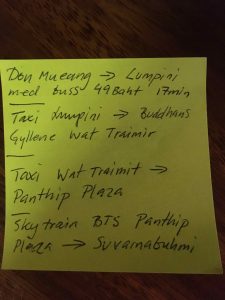 Don Mueang → Lumpini
med buss 49 Baht 17min
Taxi Lumpini → Buddhans
Gyllene Wat Traimir
Taxi Wat Traimit →
Panthip Plaza
Skytrain BTS Panthip
Plaza → Suvarnabuhmi